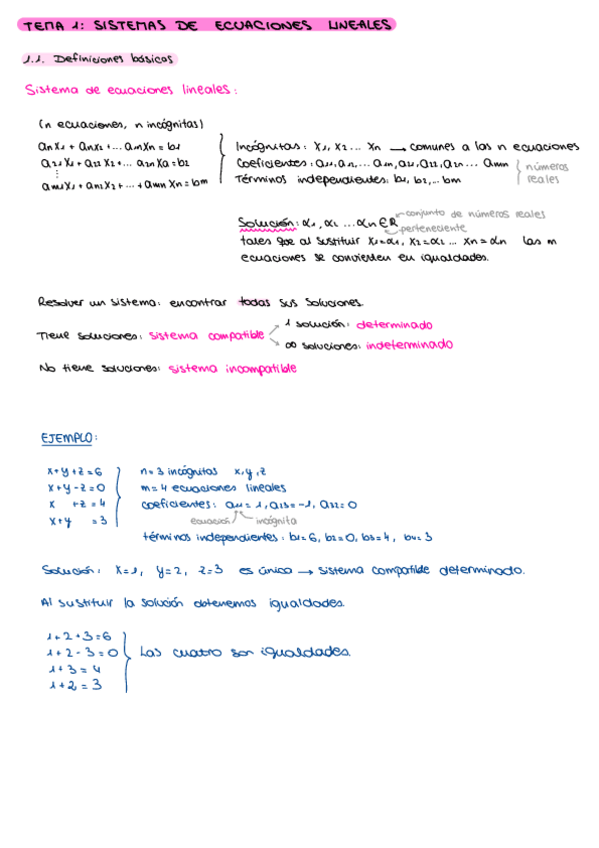 TEMA 1: SISTEMAS DE ECUACIONES LINEALES
1.1. Definiciones básicas
Sistema de ecuaciones lineales:
(n ecuaciones, n incógnitas)
a11x1 + a12x2 + ... a1nXn = b1
a21x1 + a22x2 + ... a2nXn = b2
⋮
am1x1 + am2x2 + ... + amnXn = bm
Incógnitas: x1, x2 ... xn → comunes a las n ecuaciones
Coeficientes: a11, a12, ... a1n, a21, a22, a2n ... amn
Términos independientes: b1, b2, ... bm
números
reales
Solución: α1, α2 ... αn ∈ R
conjunto de números reales
perteneciente
tales que al sustituir x1=α1, x2=α2 ... xn=αn las m
ecuaciones se convierten en igualdades.
Resolver un sistema: encontrar todas sus soluciones.
Tiene soluciones: sistema compatible
1 solución: determinado
∞ soluciones: indeterminado
No tiene soluciones: sistema incompatible
EJEMPLO:
x+y+z=6
x+y-z=0
x +z=4
x+y =3
n=3 incógnitas x,y,z
m=4 ecuaciones lineales
coeficientes: a11=1, a23=-1, a32=0
ecuación incógnita
términos independientes: b1=6, b2=0, b3=4, b4=3
Solución: x=1, y=2, z=3 es única → sistema compatible determinado.
Al sustituir la solución obtenemos igualdades.
1+2+3=6
1+2-3=0
1+3=4
1+2=3
Las cuatro son igualdades.